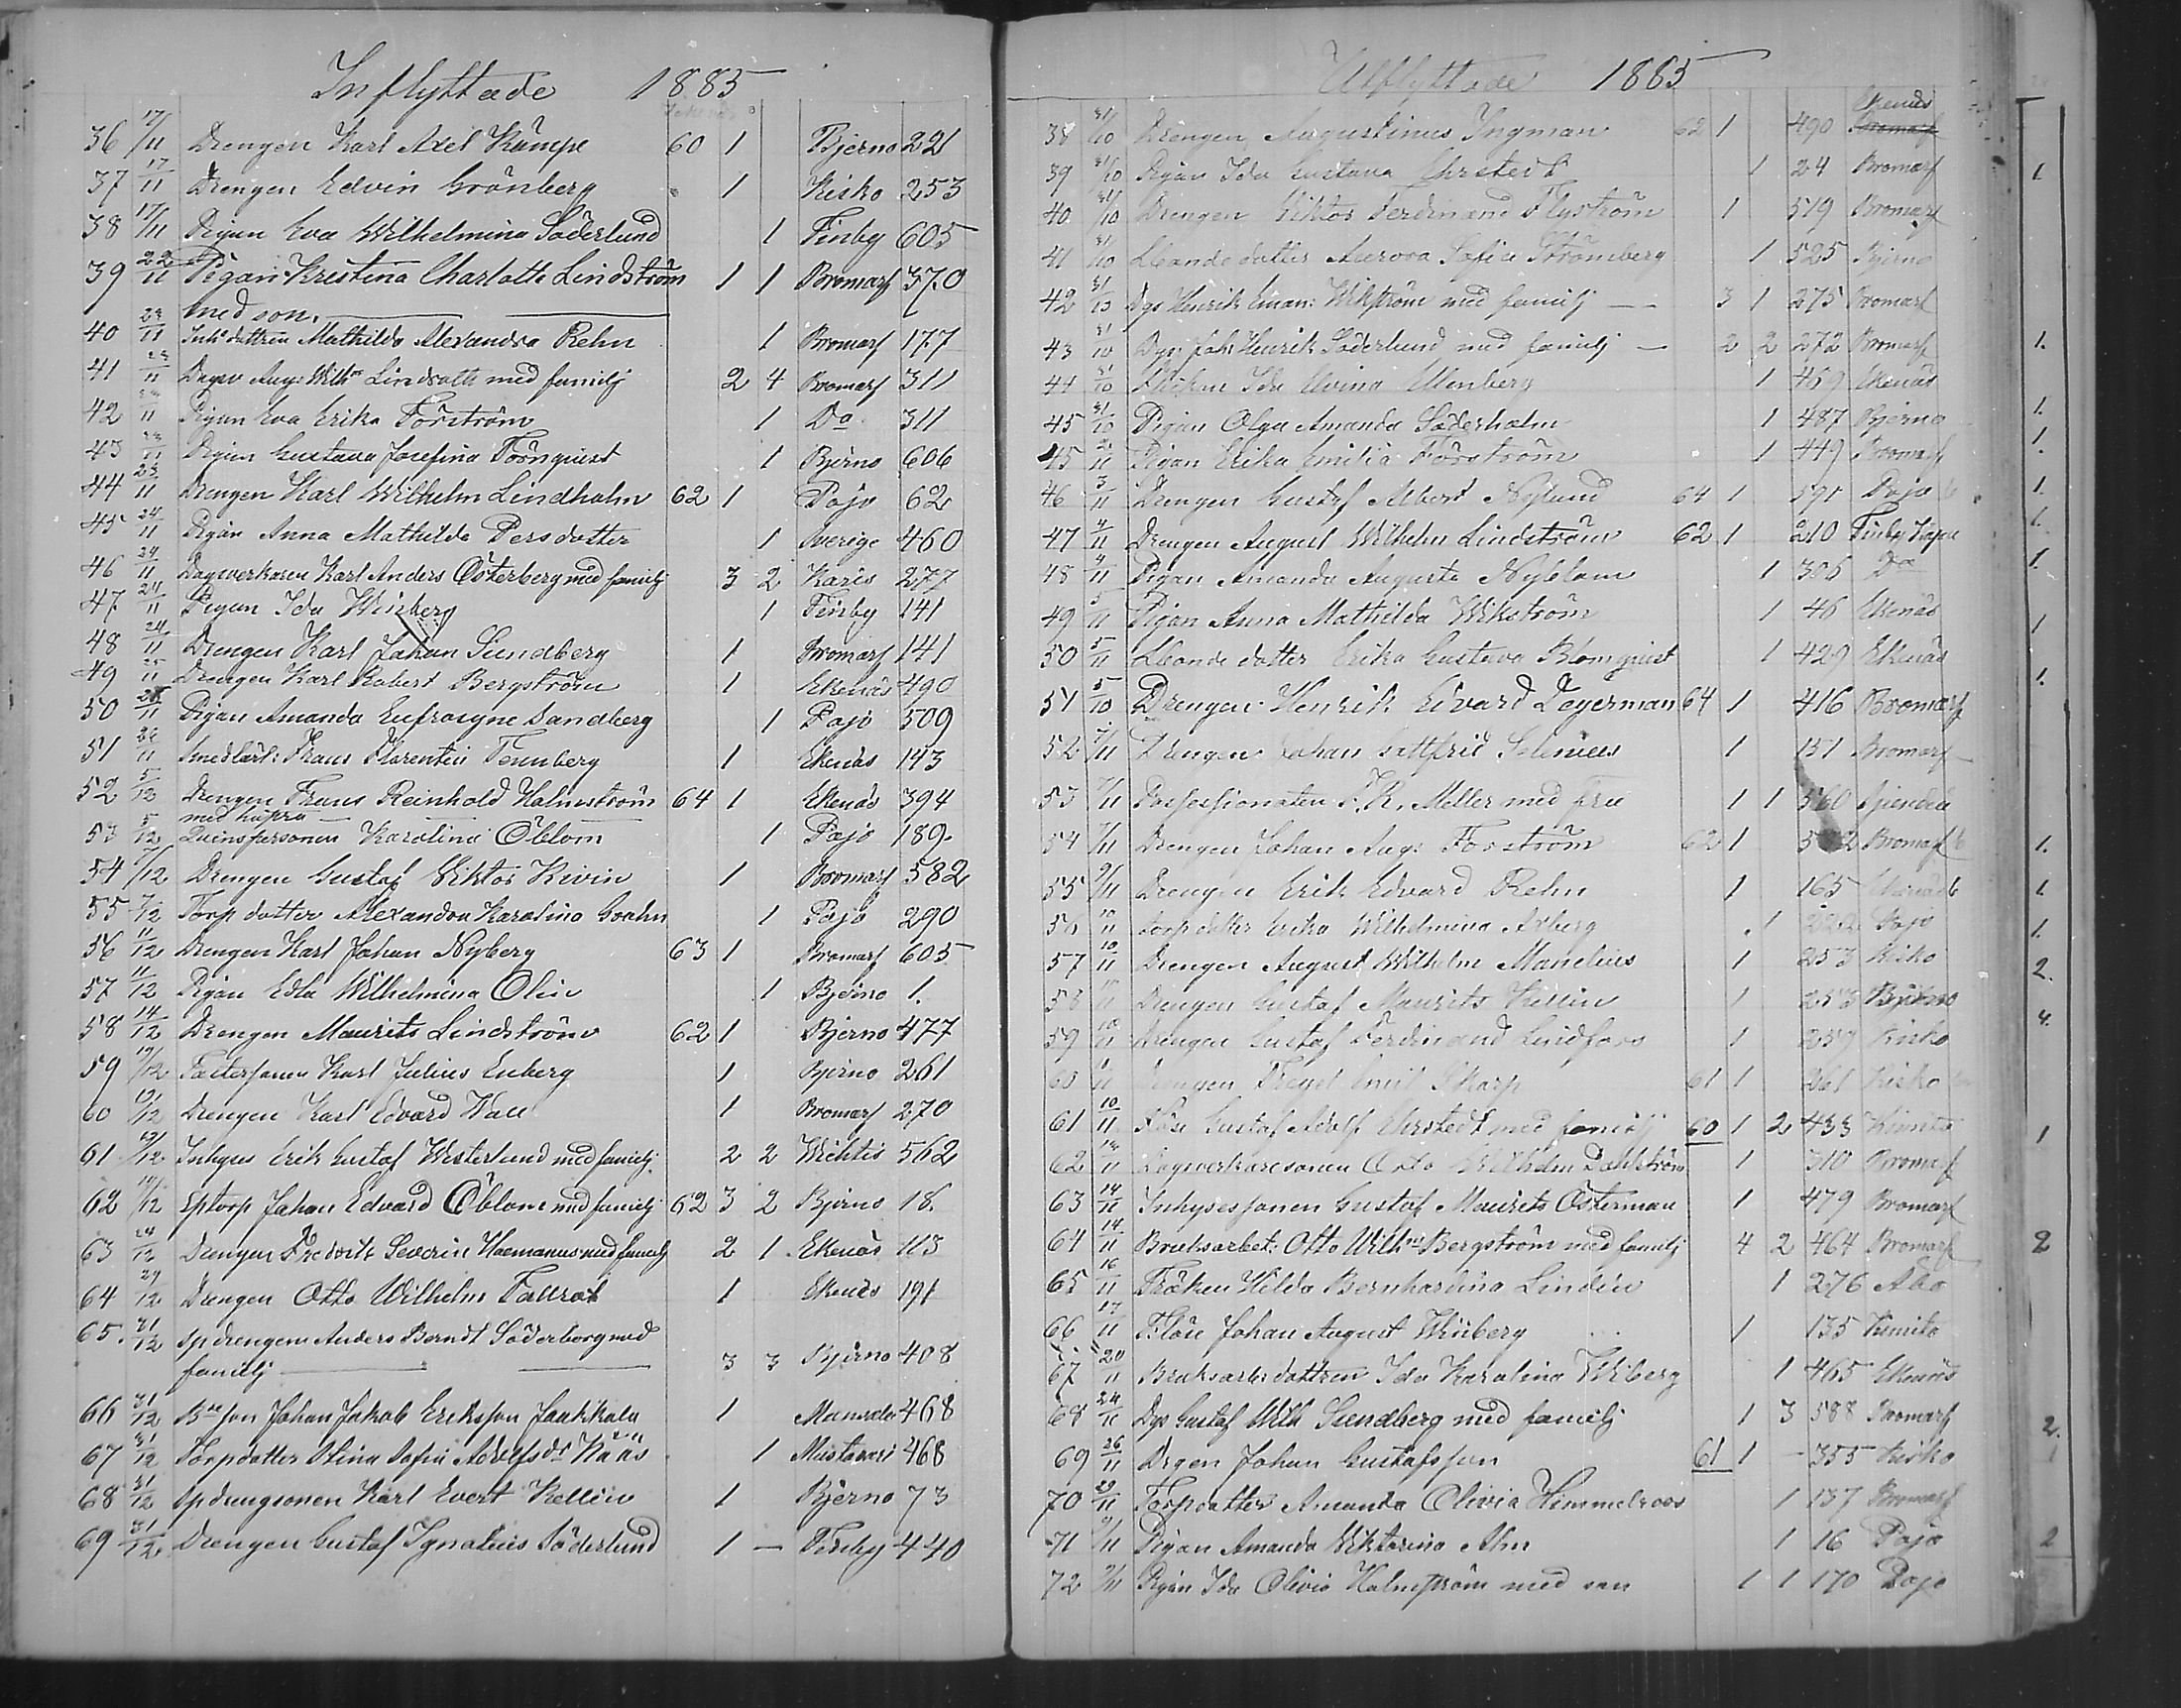 Inflyttade 1885
36 17/11 Drengen Karl Axel Kämpe 60 1 Bjerno 221
37 17/11 Drengen Edvin Grönberg 1 Kisko 253
38 17/11 Pigan Eva Wilhelmina Söderlund 1 Finby 605
39 22/11 Pigan Kristina Charlotta Lindström 1 1 Bromarf 370
med son.
40 23/11 Inh: dottren Mathilda Alexandra Rehn 1 Bromarf 177
41 23/11 Dagsv Aug: Wilh: Lindroth med familj 2 4 Bromarf 311
42 23/11 Pigan Eva Erika Förström 1 Do 311
43 23/11 Pigan Gustava Josefina Törnquist 1 Bjerno 606
44 23/11 Drengen Karl Wilhelm Lindholm 62 1 Pojo 62
45 24/11 Pigan Anna Mathilda Persdotter 1 Sverige 460
46 24/11 Dagsverkaren Karl Anders Österberg med familj 3 2 Karis 277
47 24/11 Pigan Ida Winberg 1 Finby 141
48 24/11 Drengen Karl Johan Sundberg 1 Bromarf 141
49 25/11 Drengen Karl Robert Bergström 1 Ekenäs 490
50 /11 Pigan Amanda Eufrosyne Sandberg 1 Pojo 509
51 26/11 Smedlärl: Frans Florentin Tennberg 1 Ekenäs 143
52 5/12 Drengen Frans Reinhold Holmström 64 1 Ekenäs 394
med hustru
53 5/12 Qvinspersonen Karolina Öblom 1 Pojo 189
54 7/12 Drengen Gustaf Viktor Kivin 1 Bromarf 582
55 7/12 Torp dotter Alexandra Karolina Grahn 1 Pojo 290
56 11/12 Drengen Karl Johan Nyberg 63 1 Bromarf 605
57 11/12 Pigan Edla Wilhelmina Olin 1 Bjerno 1.
58 14/12 Drengen Maurits Lindström 62 1 Bjerno 477
59 19/12 Karl Julius Enberg 1 Bjerno 261
60 19/12 Drengen Karl Edvard 1 Bromarf 270
61 19/12 Inhyses Erik Gustaf Westerlund med familj 2 2 Wichtis 562
62 19/12 Sptorp Johan Edvard Öblom med familj 62 3 2 Bjerno 18.
63 24/12 Drengen Fredrik Severin med familj 2 1 Ekenäs 113
64 29/12 Drengen Otto Wilhelm Fallrot 1 Ekenäs 191
65. 31/12 Spdrengen Anders Berndt Söderborg med
familj 3 3 Bjerno 408
66 31/12 Johan Jakob Eriksson 1 468
67 31/12 Torpdotter Stina Sofia Adolfsdr 1 468
68 31/12 Spdrengsonen Karl Evert Kellin 1 Bjerno 73
69 31/12 Drengen Gustaf Ignatius Söderlund 1 — Finby 440
Utflyttade 1885
38 31/10 Drengen Augustinus Ingman 62 1 490 Ekenäs
39 31/10 Pigan Ida Gustava Ehrstedt 1 24 Bromarf
40 31/10 Drengen Viktor Ferdinand Flyström 1 519 Bromarf
41 31/10 dotter Aurora Sofia Strömberg 1 525 Bjerno
42 31/10 Dgs Henrik Eman: Wikström med familj 3 1 275 Bromarf
43 31/10 Dgs: Joh: Henrik Söderlund med familj 2 2 272 Bromarf
44 31/10 Ida Elvina Ellenberg 1 469 Ekenäs
45 31/10 Pigan Olga Amanda Söderholm 1 487 Bjerno
45 2/11 Pigan Erika Emilia Förström 1 449 Bromarf
46 3/11 Drengen Gustaf Albert Nylund 64 1 591 Pojo
47 4/11 Drengen August Wilhelm Lindström 62 1 210 Finby
48 4/11 Pigan Amanda Augusta Nyblom 1 305 Do
49 5/11 Pigan Anna Mathilda Wikström 1 46 Ekenäs
50 5/11 dotter Erika Gustava Blomquist 1 429 Ekenäs
51 5/10 Drengen Henrik Edvard Legerman 64 1 416 Bromarf
52 7/11 Drengen Johan Gottfrid Selenius 1 151 Bromarf
53 7/11 Possessionaten F. R. Meller med fru 1 1 560
54 7/11 Drengen Johan Aug: Forström 62 1 Bromarf
55 9/11 Drengen Erik Edvard Rehn 1 165 Ekenäs
56 10/11 Torpdotter Erika Wilhelmina Axberg 1 Pojo
57 10/11 Drengen August Wilhelm Manelius 1 253 Kisko
58 /11 Drengen Gustaf Maurits Kellin 1 253 Bjerno
59 10/11 Drengen Gustaf Ferdinand Lindfors 1 257 Kisko
60 Drengen Emil Skarp 61 1 261 Kisko
61 10/11 Gustaf Adolf Ehrstedt med familj 60 1 2 433 Kimito
62 13/11 Dagsverkaresonen Otto Wilhelm Dahlström 1 310 Bromarf
63 14/11 Inhysessonen Gustaf Maurits Österman 1 479 Bromarf
64 14/11 Bruksarbet: Otto Wilh: Bergström med familj 4 2 464 Bromarf
65 16/11 Fröken Hilda Bernhardina Lindén 1 276 Åbo
66 17/11 Johan August Winberg 1 135 Kimito
67 20/11 Bruksarb: dottren Ida Karolina Wiberg 1 465 Ekenäs
68 24/11 Dgs Gustaf Wilh Sundberg med familj 1 3 588 Bromarf
69 26/11 Drgen Johan Gustafsson 61 1 - 355 Kisko
70 29/11 Torpdotter Amanda Olivia Himmelroos 1 137 Bromarf
71 9/11 Pigan Amanda Viktorina Ahn 1 16 Pojo
72 9/11 Pigan Ida Olivia Holmström med son 1 1 170 Pojo